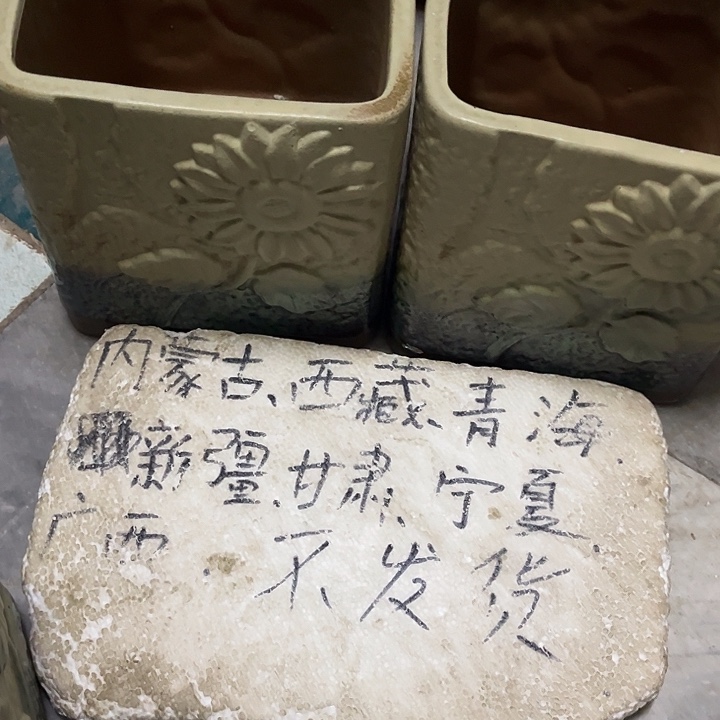 内蒙古、西藏、青海、
新疆、甘肃、宁夏
广西. 不发货